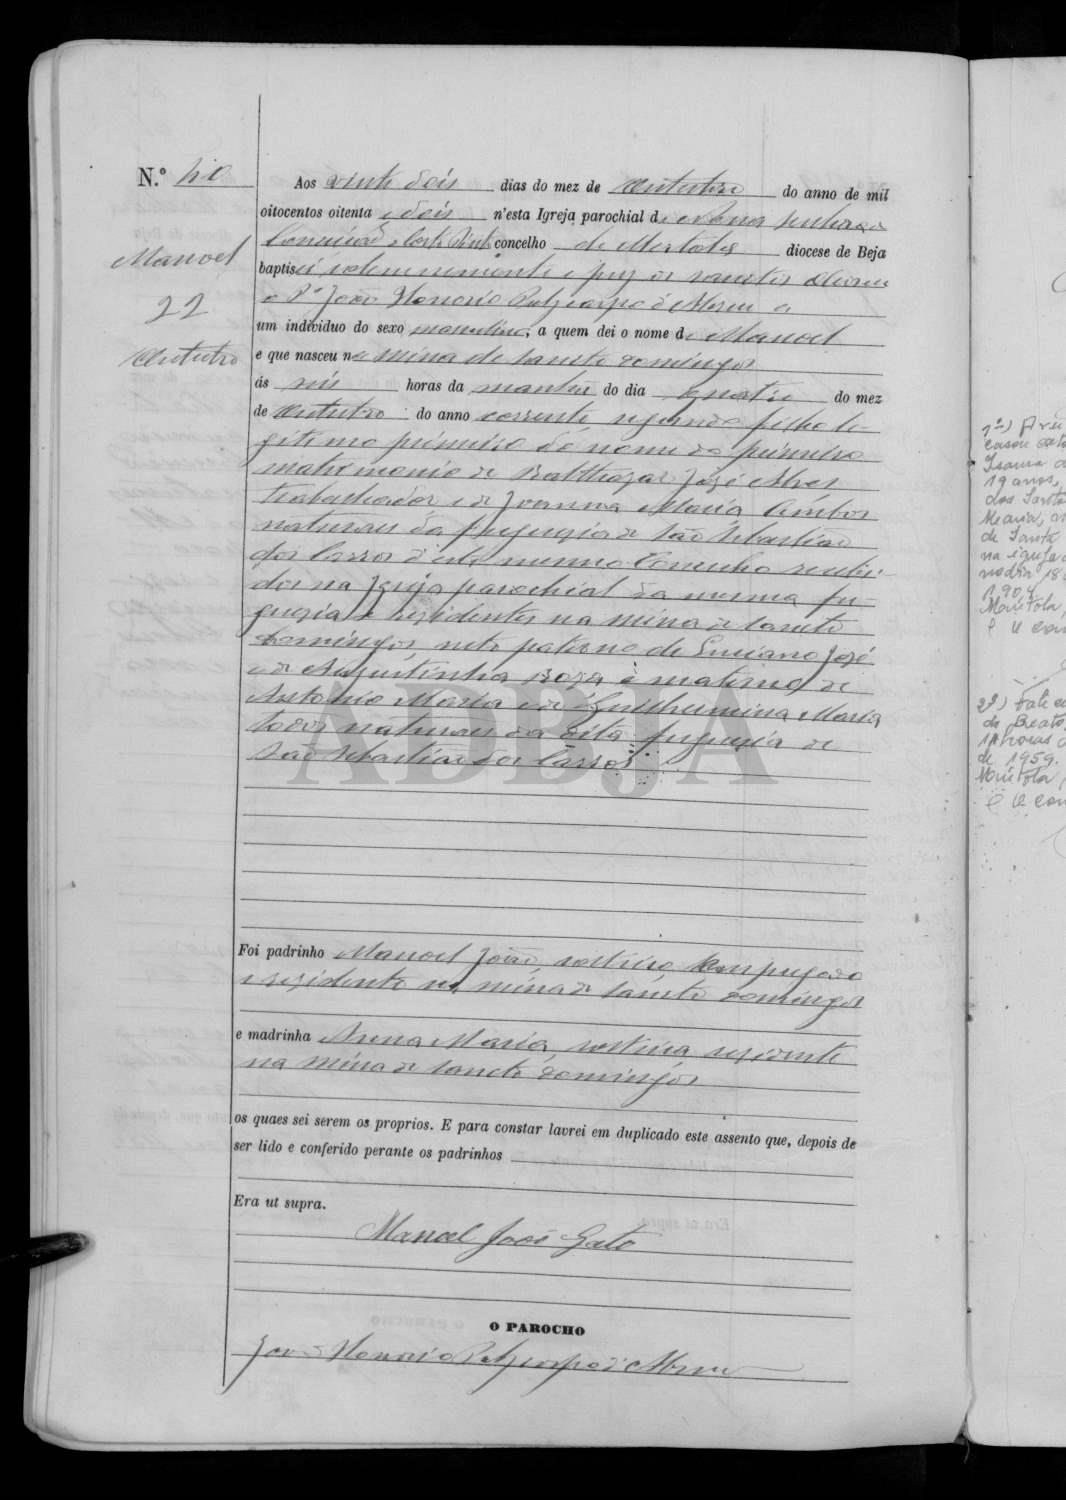 N.º 40
Manoel
22
Outubro
Aos vinte dois dias do mez de Outubro do anno de mil
oitocentos oitenta e dois n'esta Igreja parochial de Nossa Senhora da
Conceição concelho de Mertola diocese de Beja
baptisei solemnemente e puz os sanctos Oleos
o P.e João Honorio a
um individuo do sexo masculino, a quem dei o nome de Manoel
e que nasceu na mina de Sancto Domingos
ás seis horas da manhã do dia quatro do mez
de Outubro do anno corrente, segundo filho le-
gitimo primeiro do nome do primeiro
matrimonio de Balthazar José Alves
trabalhador e de Joanna Maria Ambos
naturaes da freguezia de São Sebastiao
dos Carros d'este mesmo Concelho recebi-
dos na Igreja parochial da mesma fre-
guezia e residentes na mina de Sancto
Domingos, neto paterno de Luciano José
e de Augustinha Roza e materno de
Antonio Maria e de Guilhermina Maria
todos naturaes da dita freguezia de
São Sebastiao dos Carros
ADBJA
Foi padrinho Manoel João, solteiro, Empregado
e rezidente na mina de Sancto Domingos
e madrinha Anna Maria, solteira rezidente
na mina de Sancto Domingos
os quaes sei serem os proprios. E para constar lavrei em duplicado este assento que, depois de
ser lido e conferido perante os padrinhos
Era ut supra.
Manoel João Gato
O PAROCHO
João Honorio
1º)
Casou
Isaura
19 anos,
dos Santos
Maria,
de Santa
na igreja
no dia 18
1904
Mértola,
2º) Fale
de Beato
horas
de 1959.
Mértola,